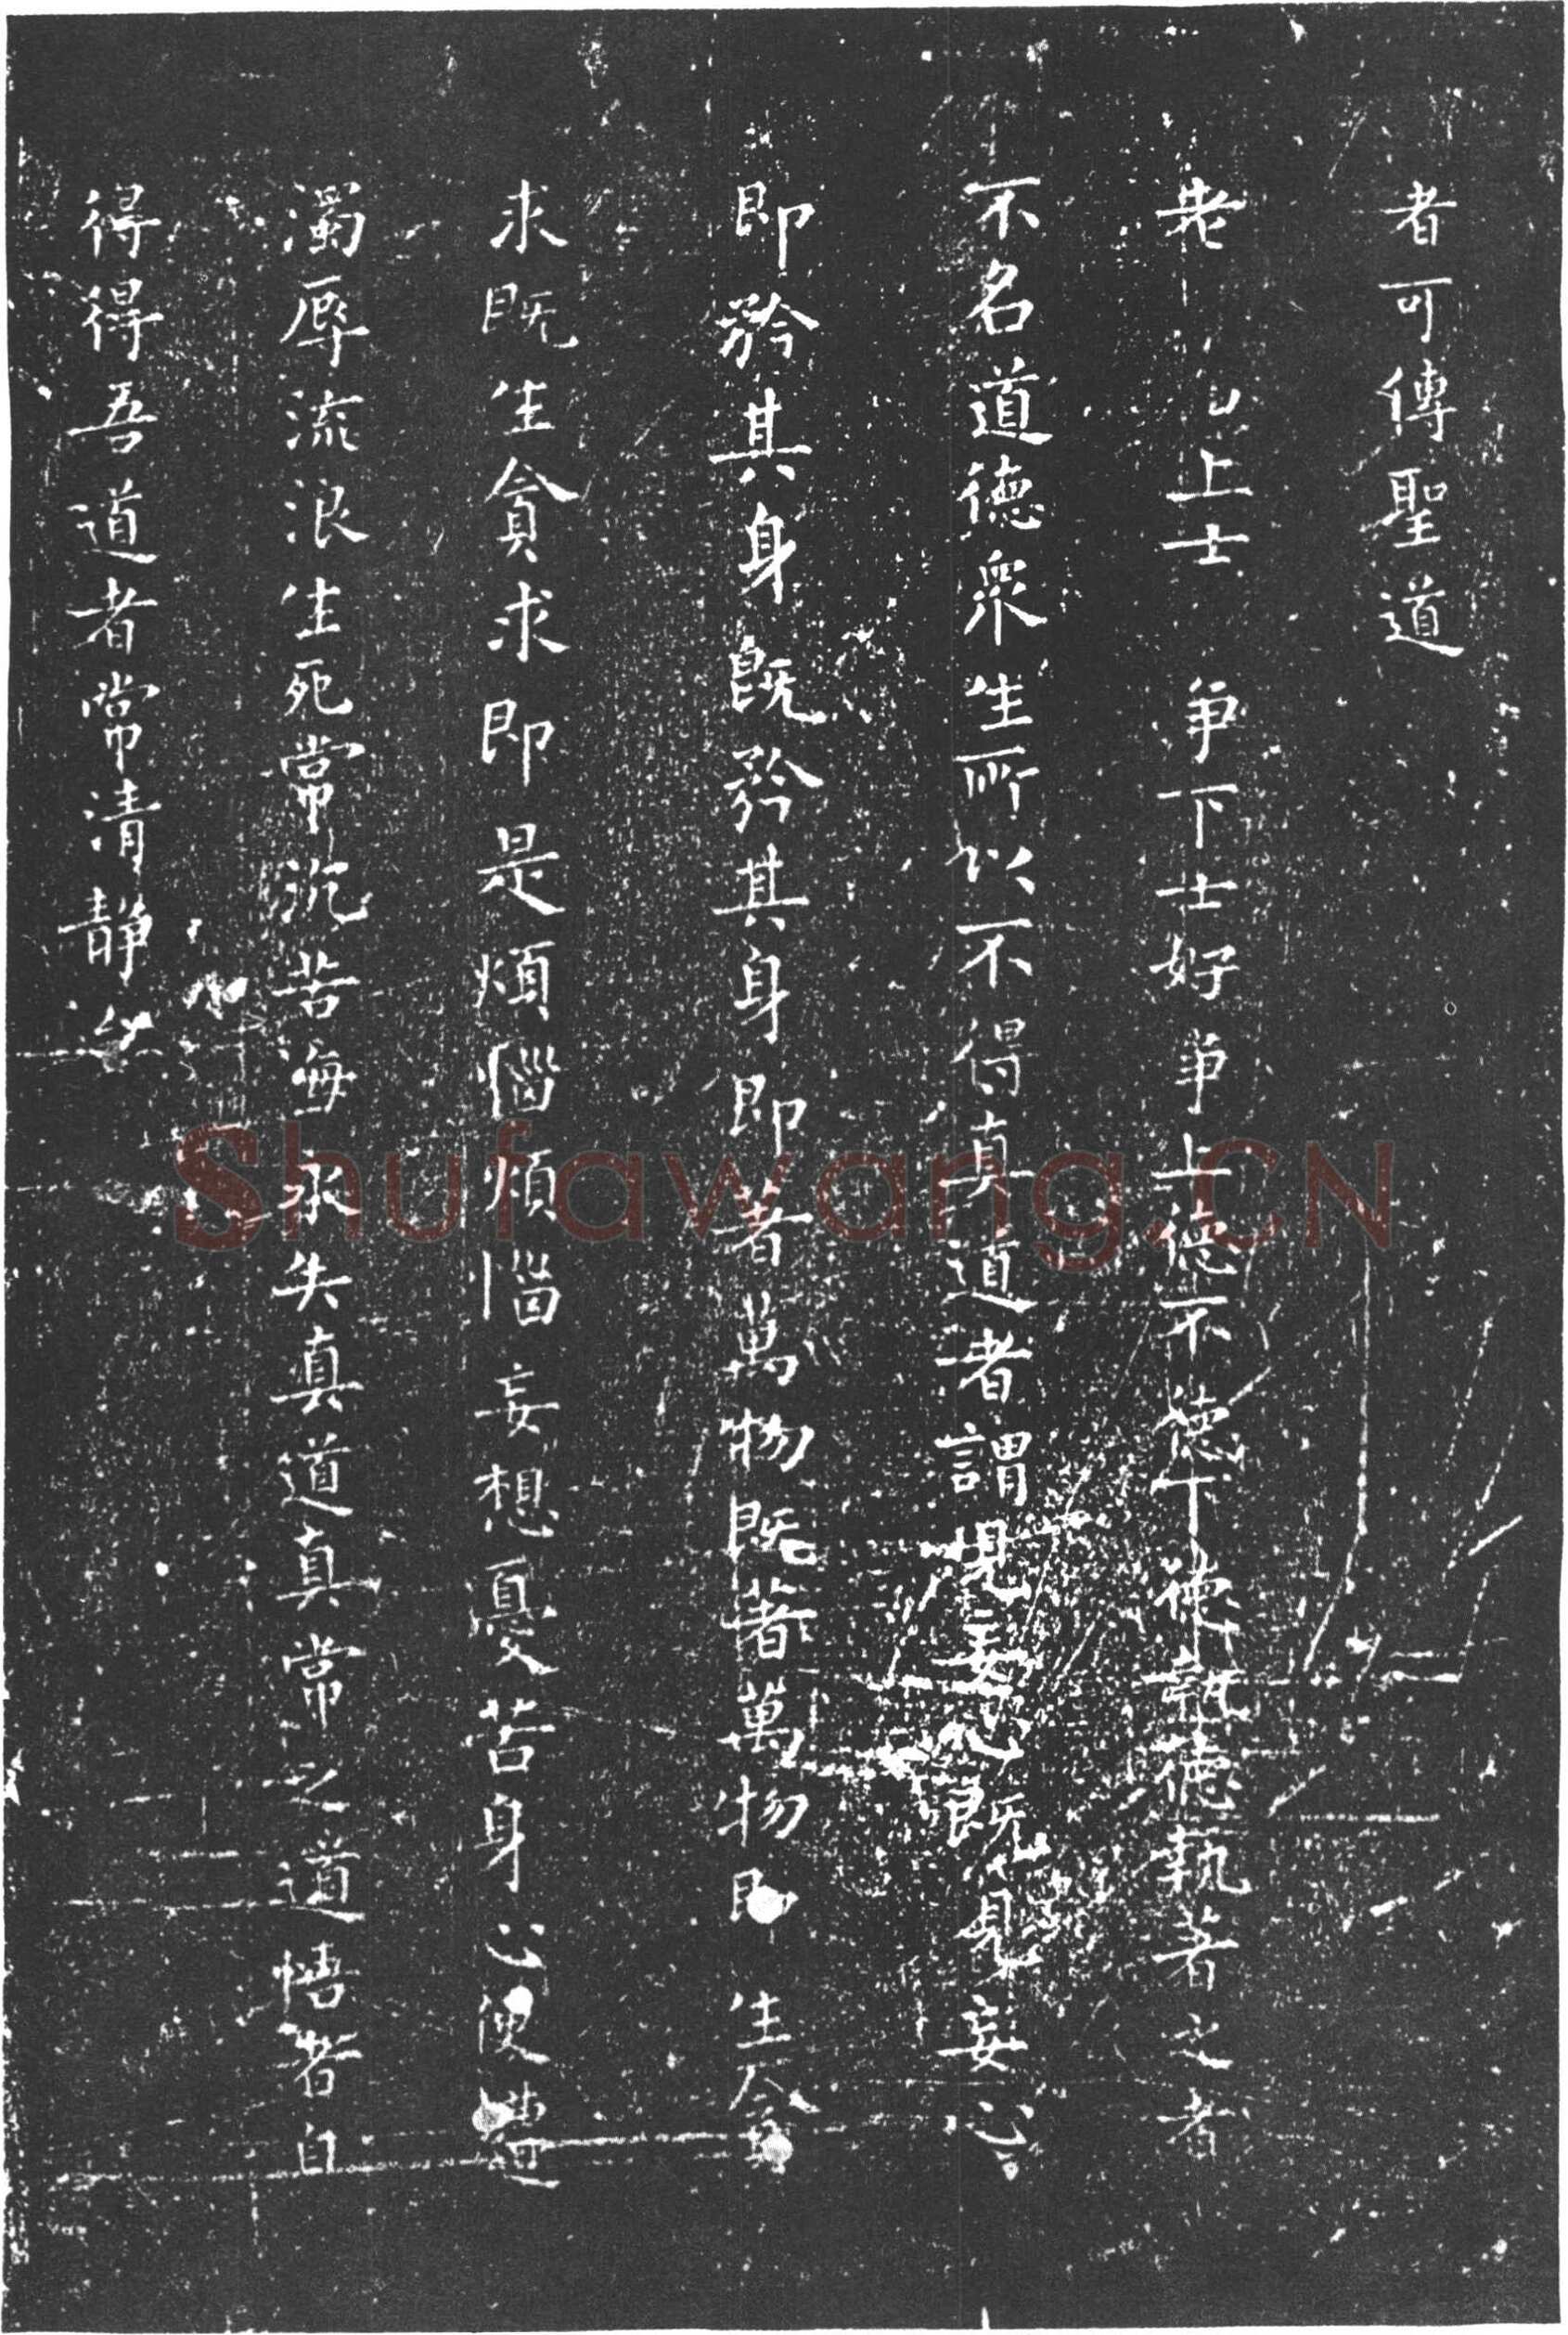 者可傳聖道
老上士爭下士好爭上德不德下德執德執著之者
不名道德衆生所以不得真道者謂現妄心既見妄心
即矜其身既矜其身即著萬物既著萬物即生貪
求既生貪求即是煩惱煩惱妄想憂苦身心便遭
濁辱流浪生死常沉苦海永失真道真常之道悟者自
得得吾道者常清静矣
Shufawang.CN